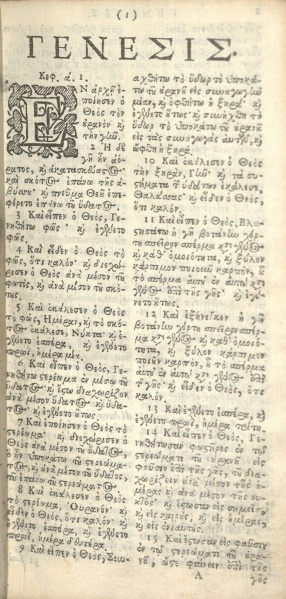 (1)
ΓΕΝΕΣΙΣ.
Κεφ. ά. 1.
ΕΝ ἀρχῇ ἐ-
ποίησεν ὁ
Θεὸς τὸν
ἐρανὸν κ̀
τὴν γῆν.
2 Ἡ δὲ
γῆ ἦν ἀό-
ρατος, κ̀ ἀκατασκεύαστος
κ̀ σκότος ἐπάνω τῆς ἀ-
βύσσου· κ̀ πνεῦμα Θεοῦ ἐπε-
φέρετο ἐπάνω τοῦ ὕδατος.
3 Καὶ εἶπεν ὁ Θεὸς, Γε-
νηθήτω φῶς· κ̀ ἐγένετο
φῶς.
4 Καὶ εἶδεν ὁ Θεὸς τὸ
φῶς, ὅτι καλόν· κ̀ διεχώ-
ρισεν ὁ Θεὸς ἀνὰ μέσον τοῦ
φωτὸς, κ̀ ἀνὰ μέσον τοῦ σκό-
τους.
5 Καὶ ἐκάλεσεν ὁ Θεὸς
τὸ φῶς, Ἡμέραν, κ̀ τὸ σκό-
τος ἐκάλεσε, Νύκτα· κ̀ ἐ-
γένετο ἑσπέρα, κ̀ ἐγένετο
πρωῒ, ἡμέρα μία.
6 Καὶ εἶπεν ὁ Θεὸς, Γε-
νηθήτω στερέωμα ἐν μέσῳ τοῦ
ὕδατος· κ̀ ἔστω διαχωρίζον
ἀνὰ μέσον ὕδατος κ̀ ὕδα-
τος· κ̀ ἐγένετο οὕτως.
7 Καὶ ἐποίησεν ὁ Θεὸς τὸ
στερέωμα· κ̀ διεχώρισεν ὁ
Θεὸς ἀνὰ μέσον τοῦ ὕδατος,
ὃ ἦν ὑποκάτω τοῦ στερεώμα-
τος, κ̀ ἀνὰ μέσον τοῦ ὕδατος,
τοῦ ἐπάνω τοῦ στερεώματος.
8 Καὶ ἐκάλεσεν ὁ Θεὸς
τὸ στερέωμα, Οὐρανόν· κ̀
εἶδεν ὁ Θεὸς, ὅτι καλόν· κ̀
ἐγένετο ἑσπέρα, κ̀ ἐγένετο
πρωῒ, ἡμέρα δευτέρα.
9 Καὶ εἶπεν ὁ Θεὸς, Συν-
αχθήτω τὸ ὕδωρ τὸ ὑποκά-
τω τοῦ οὐρανοῦ εἰς συναγωγὴν
μίαν, κ̀ ὀφθήτω ἡ ξηρά· κ̀
ἐγένετο οὕτως· κ̀ συνήχθη τὸ
ὕδωρ τὸ ὑποκάτω τοῦ οὐρανοῦ
εἰς τὰς συναγωγὰς αὐτῶν, κ̀
ὤφθη ἡ ξηρά.
10 Καὶ ἐκάλεσεν ὁ Θεὸς
τὴν ξηρὰν, Γῆν· κ̀ τὰ συ-
στήματα τῶν ὑδάτων ἐκάλεσε,
Θαλάσσας· κ̀ εἶδεν ὁ Θεὸς,
ὅτι καλόν.
11 Καὶ εἶπεν ὁ Θεὸς, Βλα-
στησάτω ἡ γῆ βοτάνην χόρ-
του σπεῖρον σπέρμα κατὰ γένος
κ̀ καθ' ὁμοιότητα, κ̀ ξύλον
κάρπιμον ποιοῦν καρπὸν, οὗ
τὸ σπέρμα αὐτοῦ ἐν αὐτῷ κατὰ
γένος ἐπὶ τῆς γῆς· κ̀ ἐγέ-
νετο οὕτως.
12 Καὶ ἐξήνεγκεν ἡ γῆ
βοτάνην χόρτου σπεῖρον σπέρ-
μα κατὰ γένος κ̀ καθ' ὁμοιό-
τητα, κ̀ ξύλον κάρπιμον
ποιοῦν καρπὸν, οὗ τὸ σπέρμα
αὐτοῦ ἐν αὐτῷ κατὰ γένος ἐπὶ
τῆς γῆς· κ̀ εἶδεν ὁ Θεὸς, ὅτι
καλόν.
13 Καὶ ἐγένετο ἑσπέρα, κ̀
ἐγένετο πρωῒ, ἡμέρα τρίτη.
14 Καὶ εἶπεν ὁ Θεὸς, Γε-
νηθήτωσαν φωστῆρες ἐν τῷ
στερεώματι τοῦ οὐρανοῦ εἰς
φαῦσιν ἐπὶ τῆς γῆς, τοῦ δια-
χωρίζειν ἀνὰ μέσον τῆς ἡ-
μέρας κ̀ ἀνὰ μέσον τῆς νυ-
κτός· κ̀ ἔστωσαν εἰς σημεῖα,
κ̀ εἰς καιροὺς, κ̀ εἰς ἡμέρας,
κ̀ εἰς ἐνιαυτούς.
15 Καὶ ἔστωσαν εἰς φαῦσιν
ἐν τῷ στερεώματι τοῦ οὐρα-
νοῦ, ὥστε φαίνειν ἐπὶ τῆς
A
γῆς